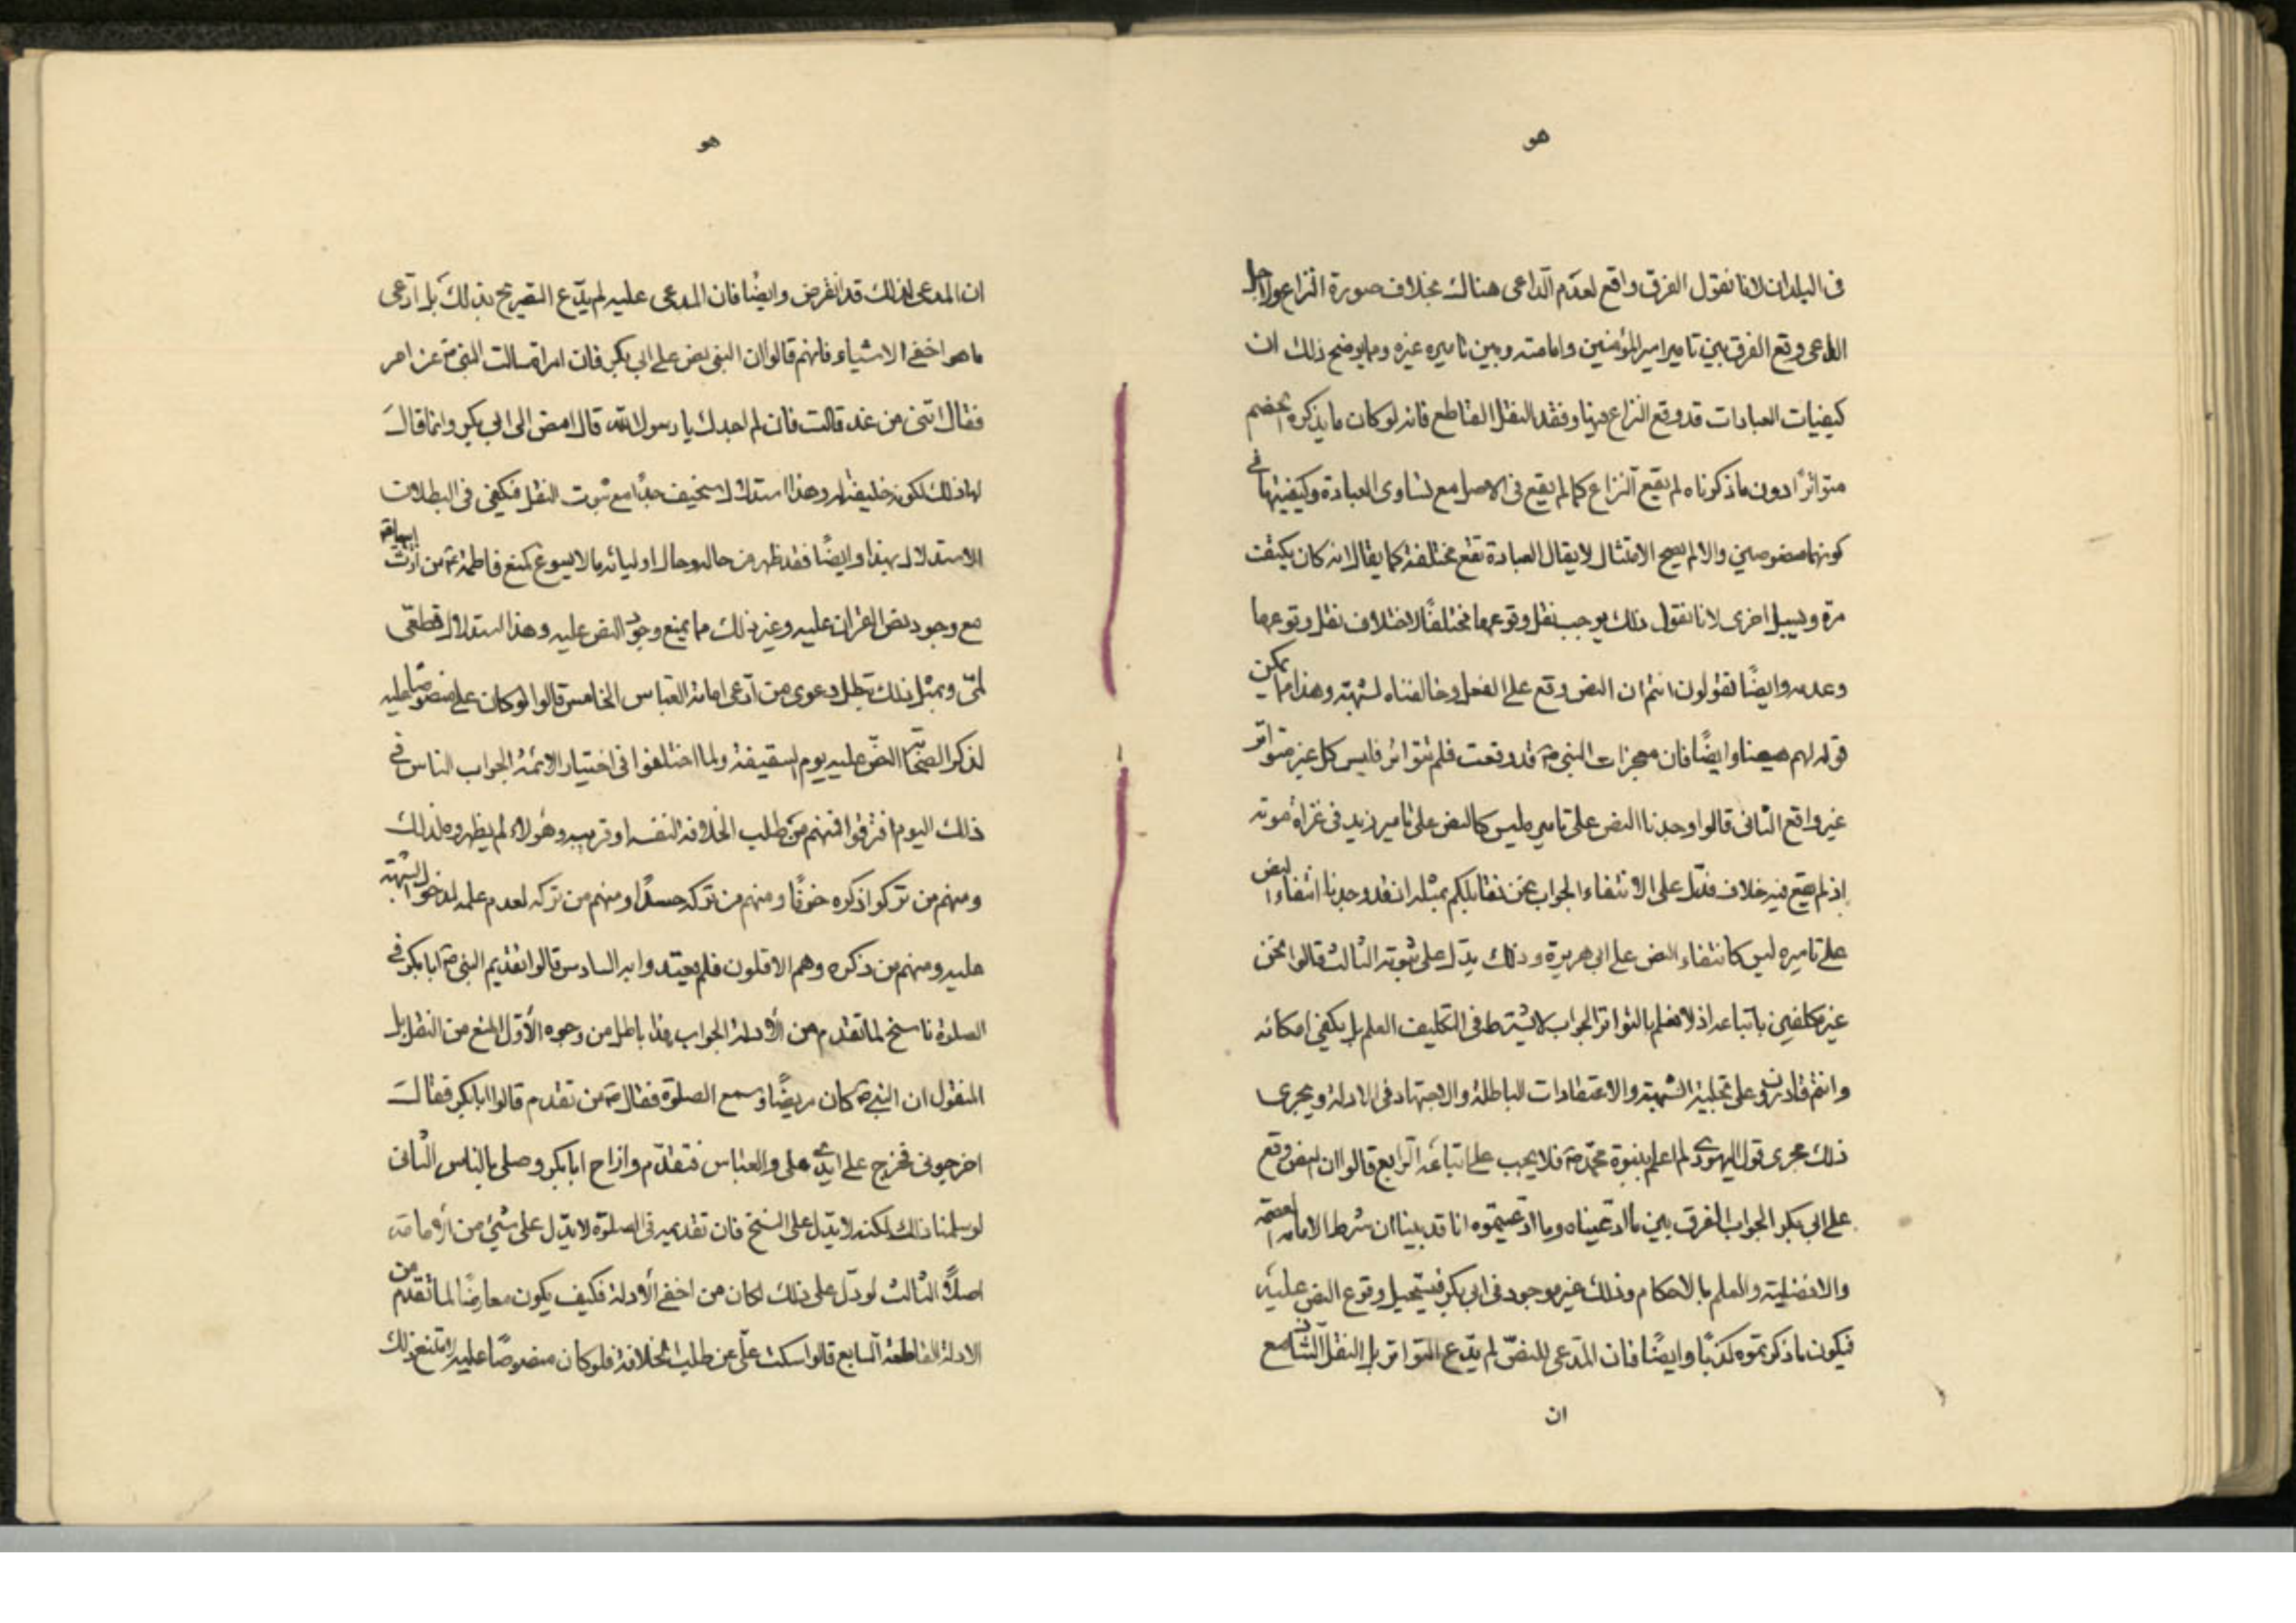 هو
في البلدان لانا نقول الفرق واقع لعدم الداعي هناك بخلاف صورة النزاع ولاجل
الداعي وقع الفرق بين تامير امير المؤمنين وامامته وبين تاميره غيره ومما يوضح ذلك ان
كيفيات العبادات قد وقع النزاع فيها وفقد النقل القاطع فانه لو كان ما يذكره الخصم
متواترًا دون ما ذكرناه لم يقع النزاع كما لم يقع في الاصل مع تساوى العبادة وكيفيتها في
كونهما منصوصين والا لم يصح الامتثال لا يقال العبادة تقع مختلفة كما يقال انه كان يكتفت
مرة ويسبل اخرى لانا نقول ذلك يوجب نقل وقوعهما مختلفًا لاختلاف نقل وقوعهما
وعدمه وايضًا تقولون انتم ان النص وقع على الفعل وخالفناه لشبهة وهذا مما يمكن
قوله لهم هيهنا وايضًا فان معجزات النبي ص قد وقعت فلم تتواتر فليس كل غير متواتر
غير واقع الثاني قالوا وجدنا النص على تاميره ليس كالنص على تامير زيد في غزاة موته
اذ لم يقع فيه خلاف فدل على الانتفاء الجواب نحن نقابلكم بمثله انا قد وجدنا انتفاء النص
على تاميره ليس كانتفاء النص على ابي هريرة وذلك يدل على ثبوته الثالث قالوا نحن
غير مكلفين باتباعه اذ لا نعلم بالتواتر الجواب لا يشترط في التكليف العلم بل يكفي امكانه
وانتم قادرون على تخلية الشبهة والاعتقادات الباطلة والاجتهاد في الادلة ويجرى
ذلك مجرى قول اليهودي لم اعلم بنبوة محمد ص فلا يجب علي اتباعه الرابع قالوا ان النص وقع
على ابي بكر الجواب الفرق بين ما ادعيناه وما ادعيتموه انا قد بينا ان شرط الامامة العصمة
والافضلية والعلم بالاحكام وذلك غير موجود في ابي بكر فيستحيل وقوع النص عليه
فيكون ما ذكرتموه كذبًا وايضًا فان المدعي للنص لم يدع التواتر بل النقل الشاذ مع
ان
هو
ان المدعي لذلك قد انقرض وايضا فان المدعى عليه لم يدع التصريح بذلك بل ادعى
ما هو اخفى الاشياء فانهم قالوا ان النبي نص على ابي بكر فان امراة سالت النبي ص عن امر
فقال ائتني من غد قالت فان لم اجدك يا رسول الله قال امض الى ابي بكر وانما قال
لها ذلك لكونه خليفة له وهذا استدلال سخيف جدًا مع ثبوت النقل فيكفي في البطلان
الاستدلال بهذا وايضًا فقد ظهر من حاله وحال اوليائه ما لا يسوغ كمنع فاطمة ع من ارث ابيها
مع وجود نص القران عليه وغير ذلك مما يمنع وجود النص عليه وهذا استدلال قطعي
لمّي وبمثل ذلك تبطل دعوى من ادعى امامة العباس الخامس قالوا لو كان علي منصوصًا عليه
لذكر الصحابة النص عليه يوم السقيفة ولما اختلفوا في اختيار الائمة الجواب الناس في
ذلك اليوم افترقوا فمنهم من طلب الخلافة لنفسه او قريبه وهؤلاء لم يظهروه لذلك
ومنهم من تركوا ذكره خوفًا ومنهم من تركه حسدًا ومنهم من تركه لعدم علمه لدخول الشبهة
عليه ومنهم من ذكره وهم الاقلون فلم يعتد وا به السادس قالوا تقديم النبي ص ابا بكر في
الصلوة ناسخ لما تقدم من الأدلة الجواب هذا باطل من وجوه الأول المنع من النقل بل
المنقول ان النبي ص كان مريضًا وسمع الصلوة فقال ص من تقدم قالوا ابا بكر فقال
اخرجوني فخرج على ايدي علي والعباس فتقدم وازاح ابا بكر وصلى بالناس الثاني
لو سلمنا ذلك لكنه لا يدل على النسخ فان تقديمه في الصلوة لا يدل على شيء من الأمامة
اصلًا الثالث لو دل على ذلك لكان من اخفى الأدلة فكيف يكون معارضًا لما تقدم من
الادلة القاطعة السابع قالوا سكت علي عن طلب الخلافة فلو كان منصوصًا عليه لامتنع ذلك